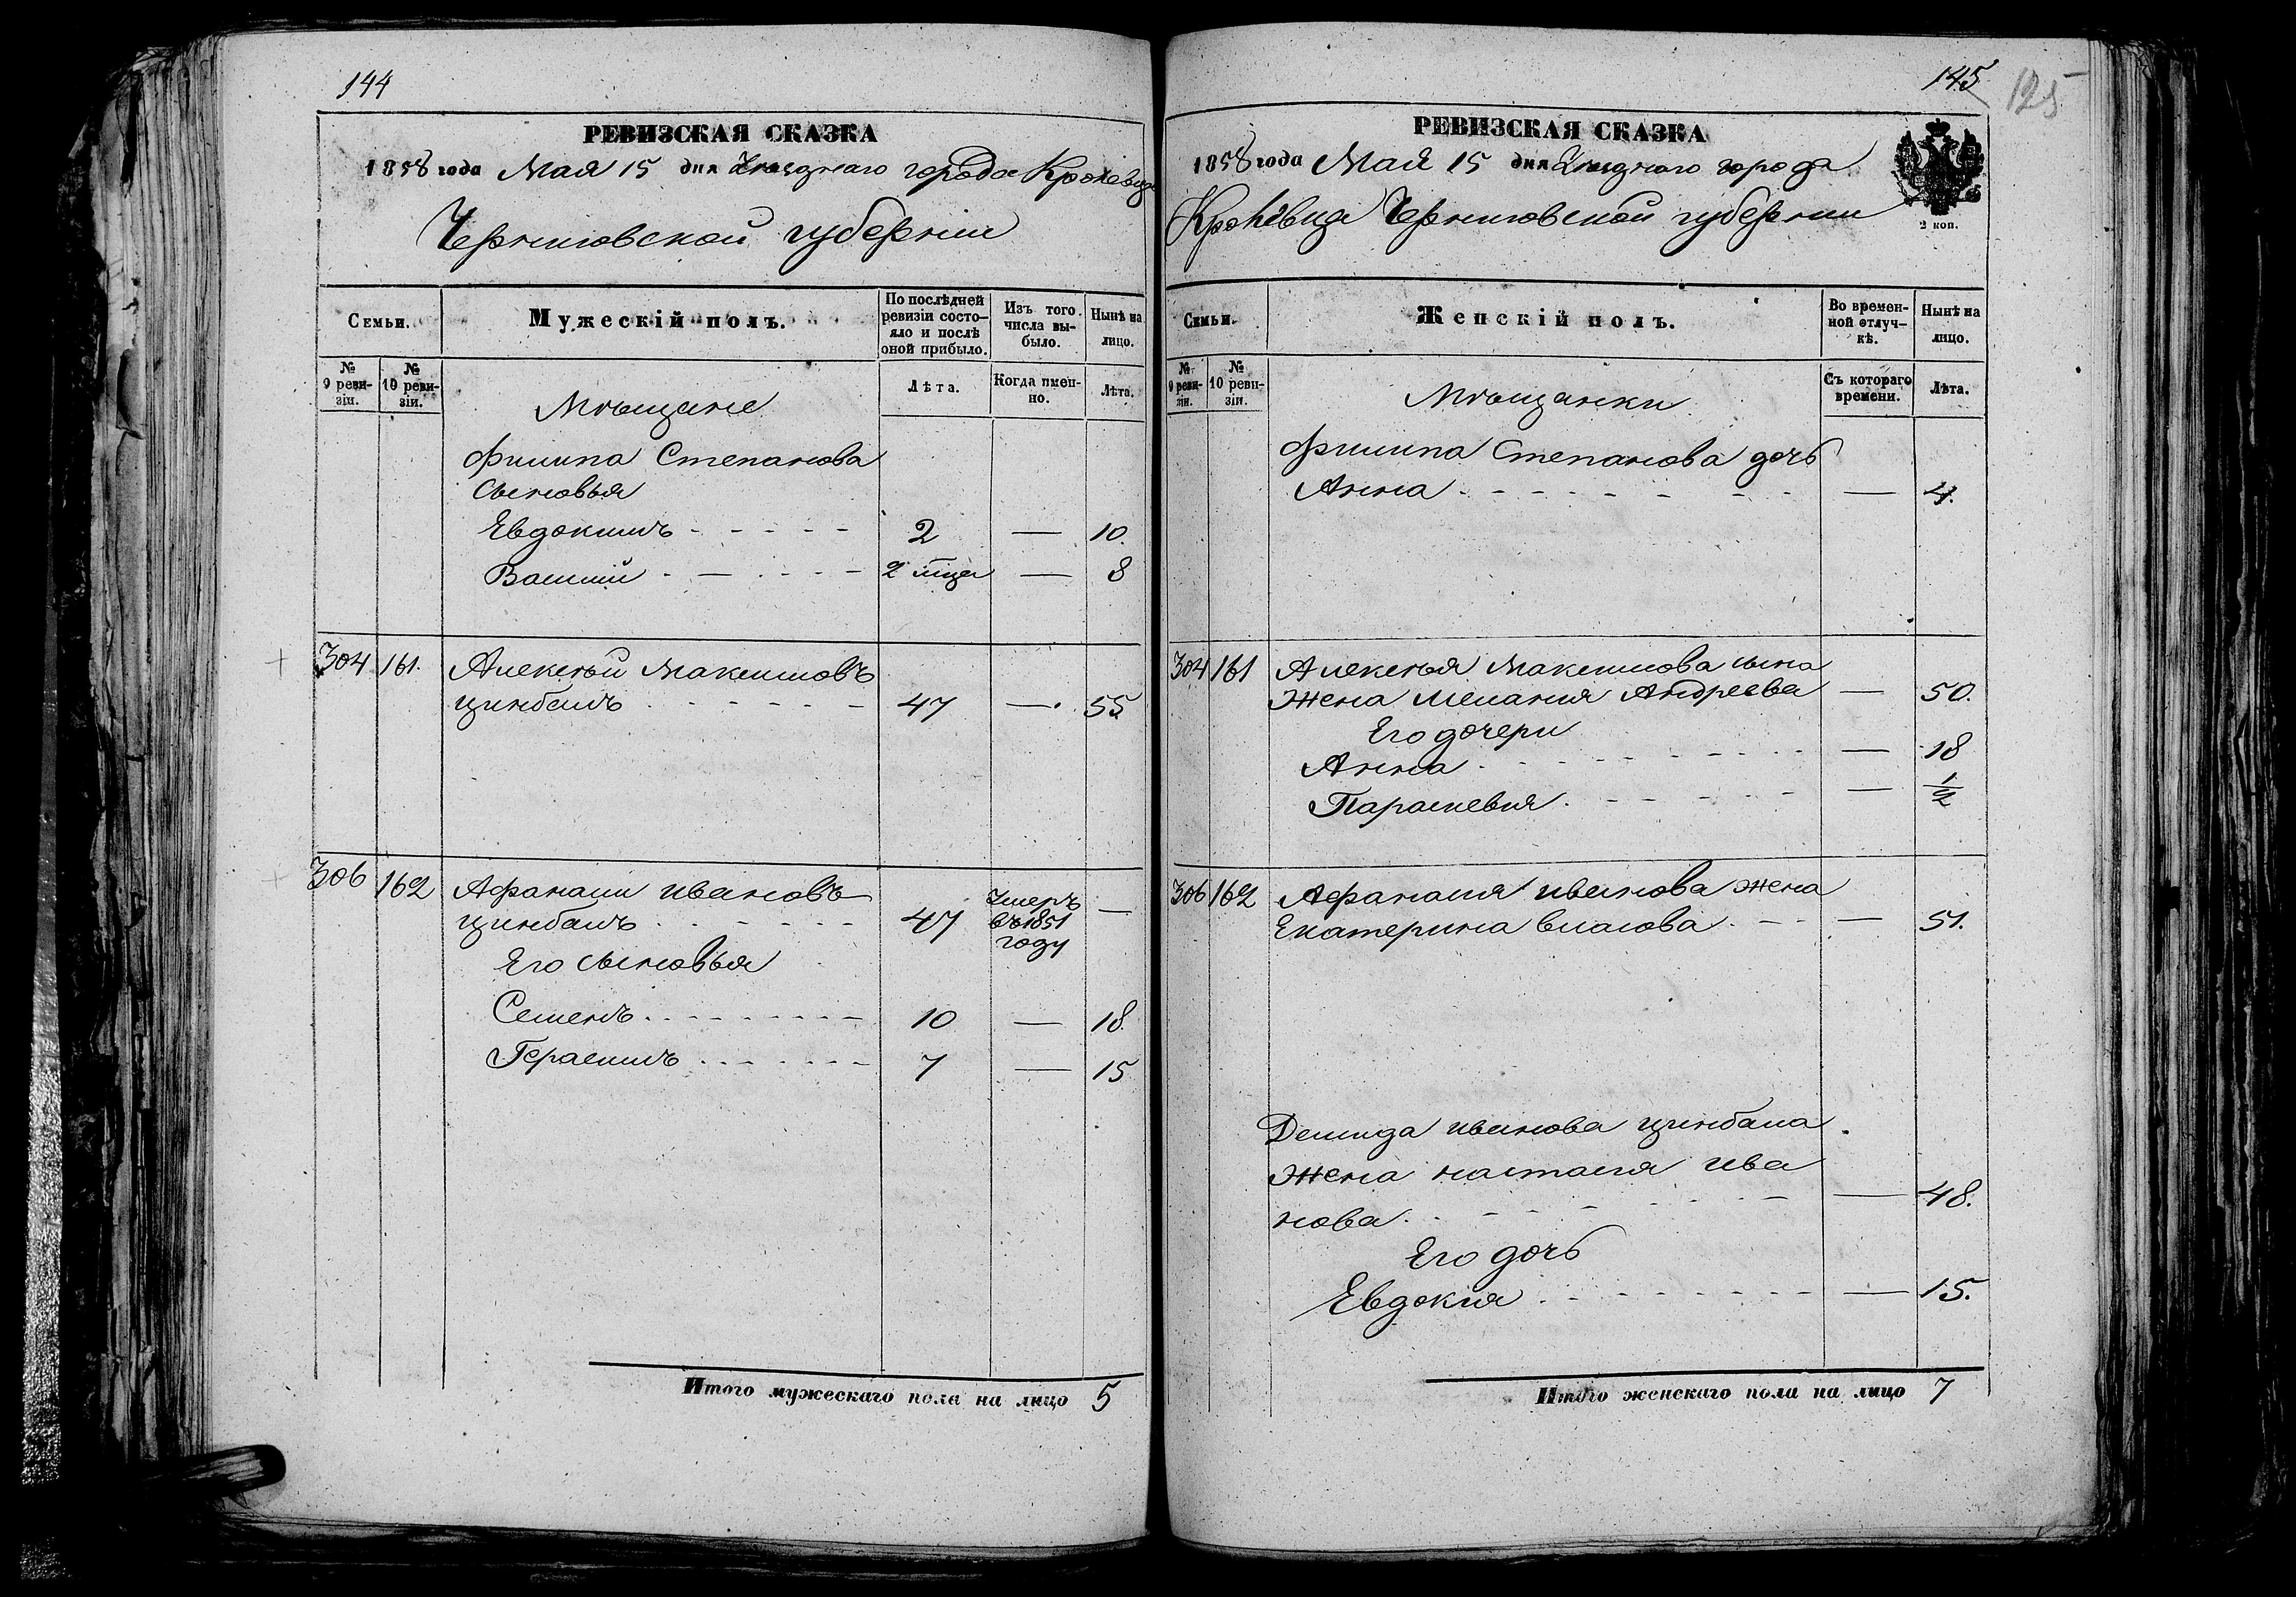 144
РЕВИЗСКАЯ СКАЗКА
1858 года Мая 15 дня Уѣзднаго города Кролевца
Черниговской губерніи
Семьи.
Мужескій полъ.
По послѣдней ревизіи состо-
яло и послѣ
оной прибыло.
Изъ того
числа вы-
было.
Нынѣ на
лицо.
№
9 реви-
зіи.
№
10 реви-
зіи.
Лѣта.
Когда имен-
но.
Лѣта.
Мѣщане
Филипа Степанова
сыновья
Евдокимъ - - - - - 2 — 10.
Василий - - - - - 2 мца — 8
304 161. Алексѣй Максимовъ
цинбалъ - - - - - 47 — 55
306 162 Афанаси ивановъ
цинбалъ - - - - - 47 Умеръ
въ 1851
году —
Его сыновья
Семенъ - - - - - 10 — 18.
Герасимъ - - - - - 7 — 15
Итого мужескаго пола на лицо 5
145
125
РЕВИЗСКАЯ СКАЗКА
1858 года Мая 15 дня Уѣзднаго города
Кролевца Черниговской губернии
2 коп.
Семьи.
Женскій полъ.
Во времен-
ной отлуч-
кѣ.
Нынѣ на
лицо.
№
9 реви-
зіи.
№
10 реви-
зіи.
Съ котораго
времени.
Лѣта.
Мѣщанки
Филипа Степанова дочь
Анна - - - - - — 4.
304 161 Алексѣя Максимова сына
жена Мелания Андреева — 50.
Его дочери
Анна - - - - - — 18
Параскевия - - - - - — 1/2
306 162 Афанасия иванова жена
Екатерина власова - - — 51.
Демида иванова цинбала
жена настасия ива
нова - - - - - — 48.
Его дочь
Евдокия - - - - - — 15.
Итого женскаго пола на лицо 7